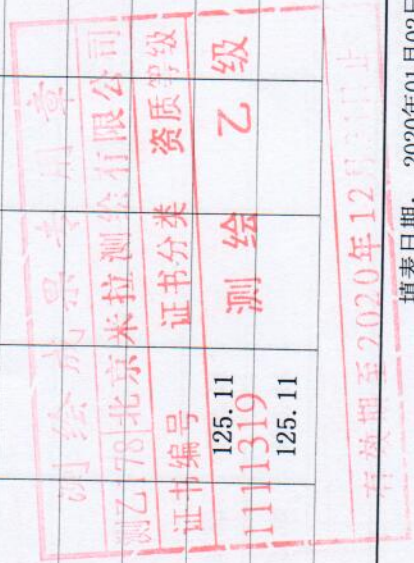 测绘成果专用章
测乙178 北京米拉测绘有限公司
证书编号 证书分类 资质等级
125.11
11111319 测绘 乙级
125.11
有效期至2020年12月31日止
填表日期: 2020年01月03日